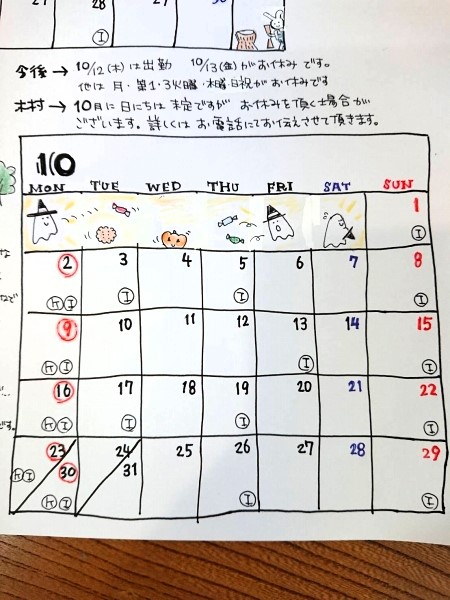 28
30
エ
今後→10/12(木)は出勤 10/13(金)がお休みです。
他は月・第1・3火曜・木曜・日祝がお休みです
木村→10月に日にちは未定ですが お休みを頂く場合が
ございます。詳しくはお電話にてお伝えさせて頂きます。
10
MON TUE WED THU FRI SAT SUN
1
エ
2 3 4 5 6 7 8
ケ エ エ エ エ
9 10 11 12 13 14 15
ケ エ エ エ
16 17 18 19 20 21 22
ケ エ エ エ エ
23 24 25 26 27 28 29
ケ エ 30 31
ケ エ エ エ
な
など
です。